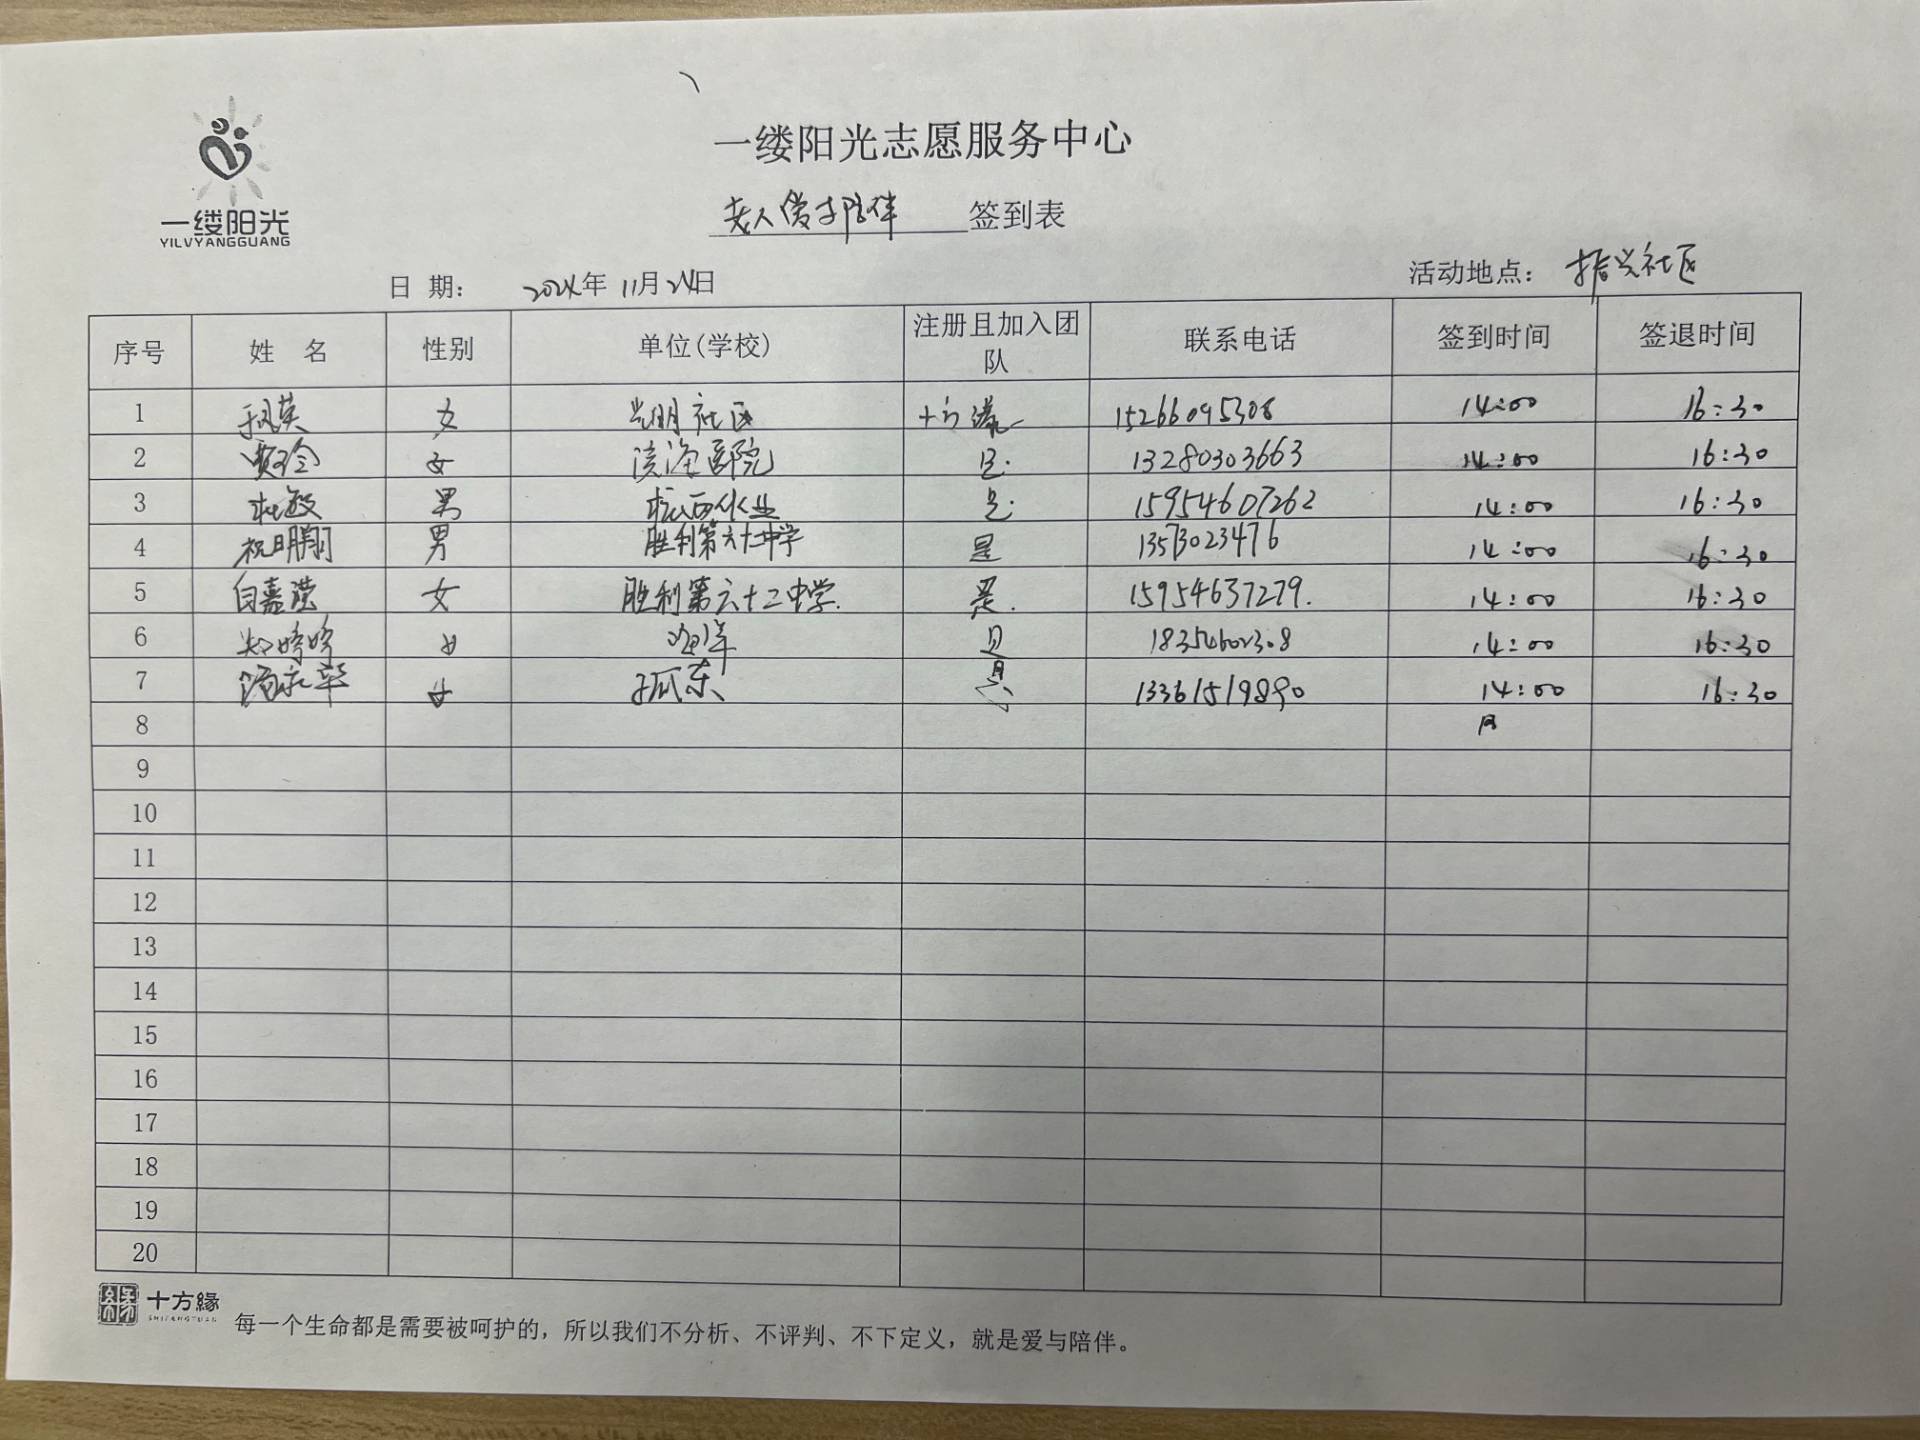 一缕阳光志愿服务中心
一缕阳光
YILVYANGGUANG
老人陪伴 签到表
日 期： 2024年 11月24日 活动地点： 振兴社区
序号 姓 名 性别 单位(学校) 注册且加入团队 联系电话 签到时间 签退时间
1 女 光明社区 十方缘 15266095308 14:00 16:30
2 女 医院 是. 13280303663 14:00 16:30
3 杜毅 男 是. 15954607262 14:00 16:30
4 祝明翔 男 胜利第六十二中学 是 13573023476 14:00 16:30
5 白嘉滢 女 胜利第六十二中学. 是. 15954637279. 14:00 16:30
6 郑婷婷 女 是 18354602308 14:00 16:30
7 汤永华 女 孤东 是 13361519890 14:00 16:30
8
9
10
11
12
13
14
15
16
17
18
19
20
十方緣
SHIFANGYUAN
每一个生命都是需要被呵护的，所以我们不分析、不评判、不下定义，就是爱与陪伴。